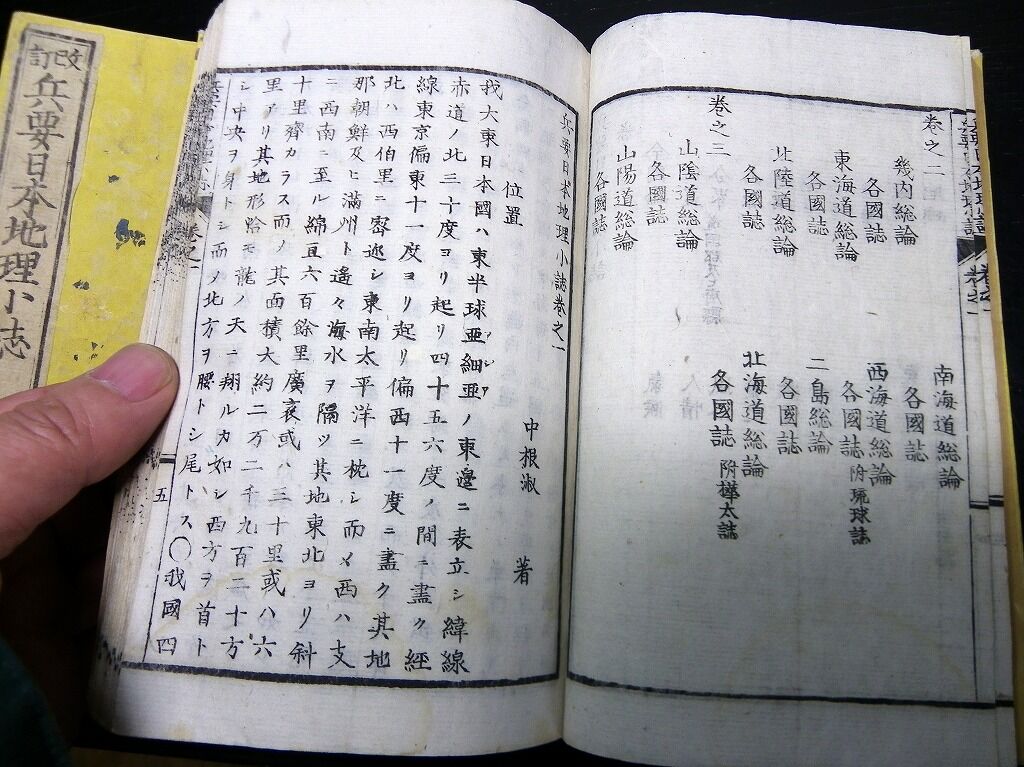 改訂
兵要日本地理小志
巻之二
畿内総論
各國誌
東海道総論
各國誌
北陸道総論
各國誌
巻之三
山陰道総論
各國誌
山陽道総論
各國誌
南海道総論
各國誌
西海道総論
各國誌 附琉球誌
二島総論
各國誌
北海道総論
各國誌 附樺太誌
兵要日本地理小誌巻之一
中根淑 著
位置
我大東日本國ハ東半球亜細亜ノ東邊ニ表立シ緯線
赤道ノ北三十度ヨリ起リ四十五六度ノ間ニ盡ク經
線東京偏東十一度ヨリ起リ偏西十一度ニ盡ク其地
北ハ西伯里ニ密邇シ東南太平洋ニ枕シ而メ西ハ支
那朝鮮及ヒ満州ト遙々海水ヲ隔ツ其地東北ヨリ斜
ニ西南ニ至ル綿亘六百餘里廣袤或ハ三十里或ハ六
十里齊カラス而ノ其面積大約二万二千九百二十方
里アリ其地形恰モ龍ノ天ニ翔ルカ如シ西方ヲ首ト
シ中央ヲ身トシ而ノ北方ヲ腰トシ尾トス〇我國四
五